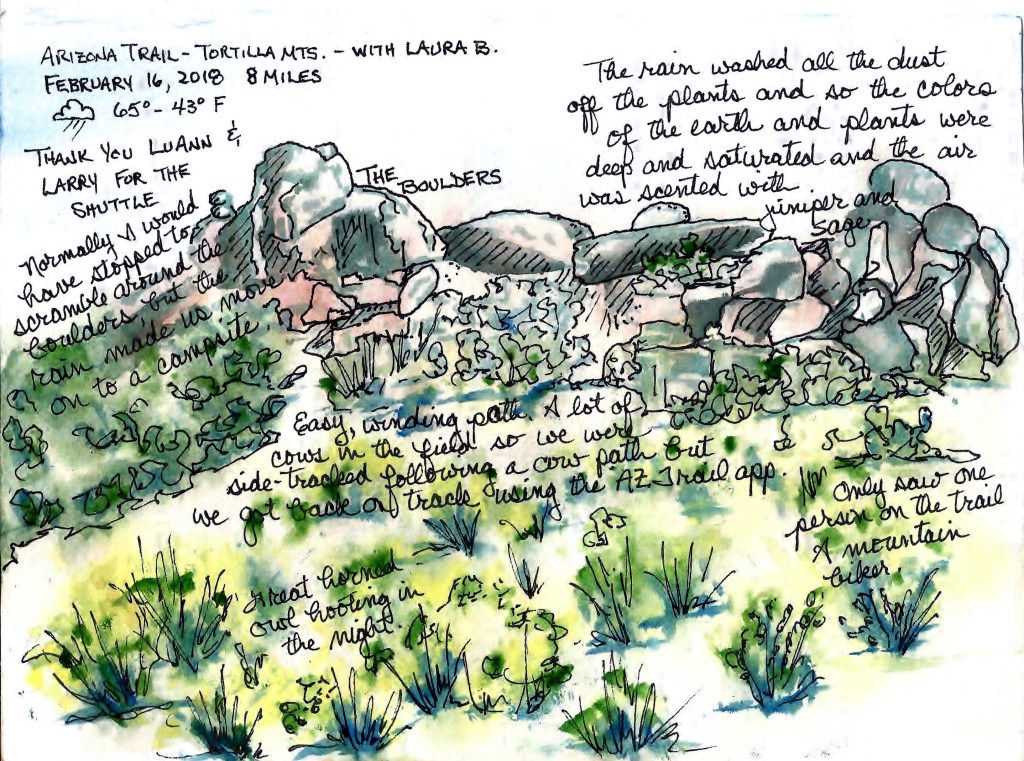 ARIZONA TRAIL - TORTILLA MTS. - WITH LAURA B.
FEBRUARY 16, 2018 8 MILES
65° - 43° F
THANK YOU LUANN &
LARRY FOR THE
SHUTTLE
Normally I would
have stopped to
scramble around the
boulders but the
rain made us move
on to a campsite
THE
BOULDERS
The rain washed all the dust
off the plants and so the colors
of the earth and plants were
deep and saturated and the air
was scented with
juniper and
sage
Easy, winding path. A lot of
cows in the field so we were
side-tracked following a cow path but
we got back on track using the AZ Trail app.
Only saw one
person on the trail
A mountain
biker.
Great horned
owl hooting in
the night.